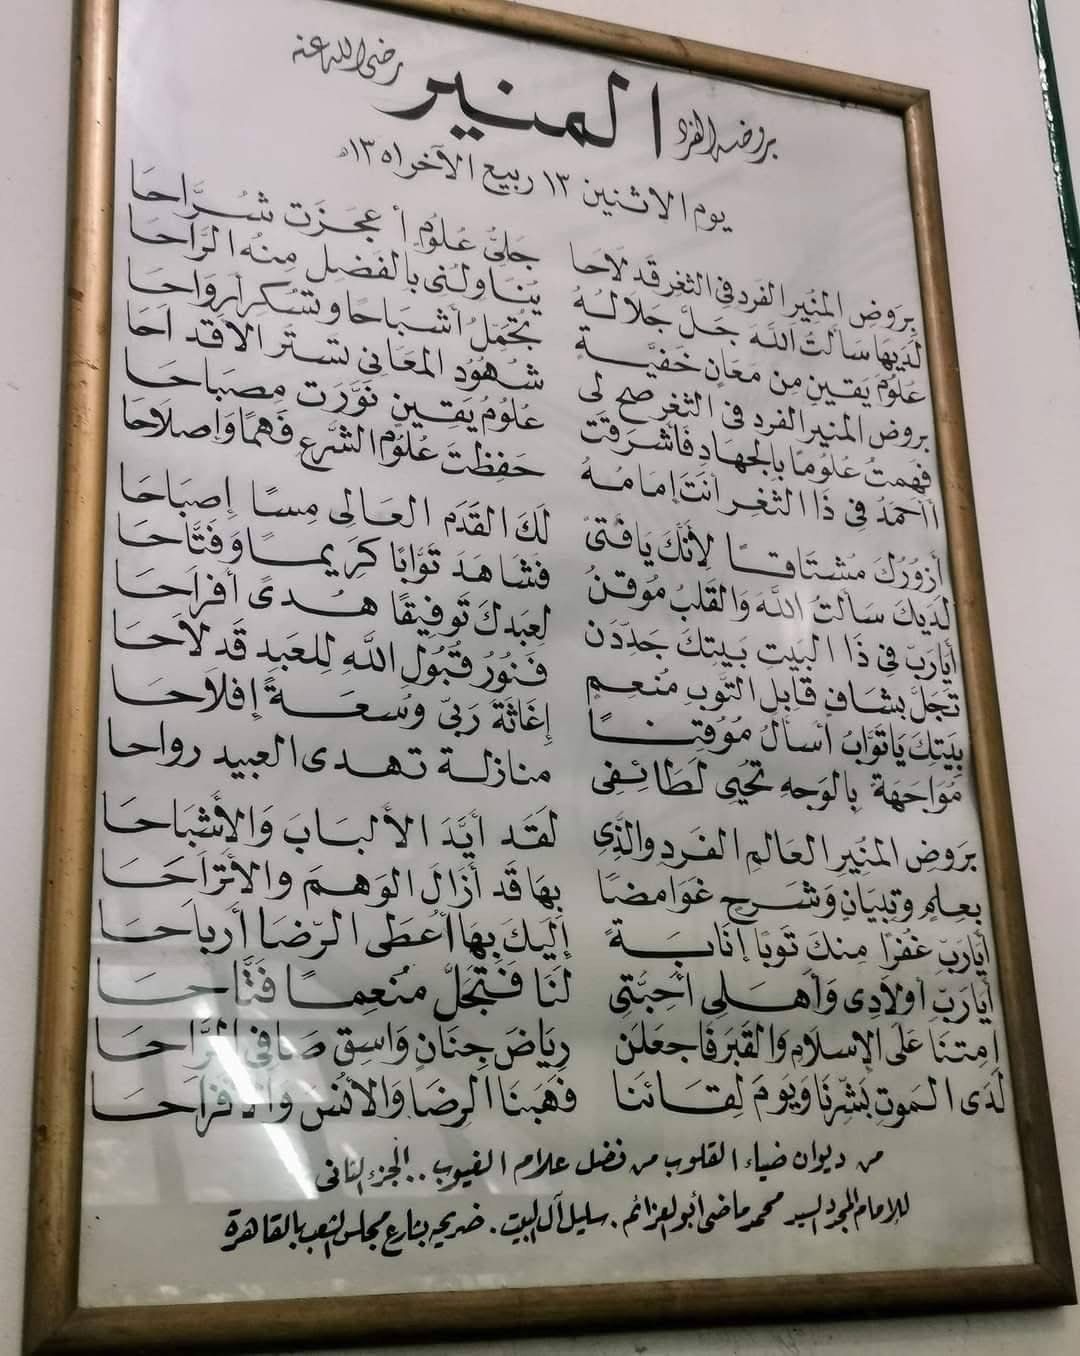 بروضه الفرد المنير رضى الله عنه
يوم الاثنين ١٣ ربيع الآخر ١٣٥١ه
بِرَوضِ المُنِيرِ الفردِ فى الثغرِ قَد لَاحَا جَلِىُّ عُلُومٍ أعجَزَت شُرَّاحَا
لَدَيهَا سَأَلتُ اللَّهَ جَلَّ جَلَالُهُ يُنَاوِلُنِى بِالفَضلِ مِنهُ الرَّاحَا
عُلُومَ يَقِينٍ مِن مَعَانٍ خَفِيَّةٍ تُجَمِّلُ أشبَاحًا وتُسكِرُ أروَاحَا
بروض المنير الفرد فى الثغر صح لى شُهُودُ المعَانِى تستر الأقداحَا
فَهِمتُ عُلُومًا بِالجِهَادِ فَأَشرَقَت عُلُومُ يَقِينٍ نَوَّرَت مِصبَاحَا
أأحمَدُ فى ذَا الثغرِ أنتَ إمَامُهُ حَفِظتَ عُلُومَ الشَّرعِ فَهمًا وَإصلَاحَا
أزُورُكَ مُشتَاقًا لأِنَّكَ يَا فَتىً لَكَ القَدَمُ العَالِى مِسًا إصبَاحَا
لَدَيكَ سَأَلتُ اللَّهَ وَالقَلبُ مُوقِنُ فَشَاهَدَ تَوَّابًا كَرِيمًا وَفَتَّاحَا
أيَارَبِّ فى ذَا البَيتِ بَيتِكَ جَدِّدَن لِعَبدِكَ تَوفِيقًا هُدىً أفرَاحَا
تَجَلَّ بشَافٍ قَابِلِ التَّوبِ مُنعِمٍ فَنُورُ قُبُولِ اللَّهِ لِلعَبدِ قَد لَاحَا
بِبَيتِكَ يَا تَوَّابُ أسألُ مُوقِنًا إغَاثَةَ رَبِّى وُسعَةً إفلَاحَا
مُوَاجَهَةً بِالوَجهِ تُحيِى لَطَائِفِى منازلة تهدى العبيد رواحا
بِرَوضِ المُنِيرِ العَالِمِ الفَردِ والَّذِى لَقَد أيَّدَ الألبَابَ وَالأشبَاحَا
بِعِلمٍ وتِبيَانٍ وَشَرحٍ غَوَامضًا بِهَا قَد أزَالَ الوَهمَ والأترَاحَا
أيَارَبِّ غُفرًا مِنكَ تَوبًا إنَابَةً إلَيكَ بِهَا أُعطَى الرِّضَا أربَاحَا
أيَارَبِّ أولَادِى وَأهلِى أحِبَّتِى لَنَا فَتَجَلَّ مُنعِمًا فَتَّاحَا
أمِتنَا عَلَى الإسلَامِ وَالقَبرَ فَاجعَلَن رِيَاضَ جِنَانٍ وَاسقِ صَافِى الرَّاحَا
لَدَى المَوتِ بَشِّرنَا وَيَومَ لِقَائِنَا فَهَبنَا الرِّضَا وَالأُنسَ وَالأفرَاحَا
من ديوان ضياء القلوب من فضل علام الغيوب .. الجزء الثانى
للإمام المجدد السيد محمد ماضى أبو العزائم . سليل آل البيت . ضريحه بشارع مجلس الشعب بالقاهرة